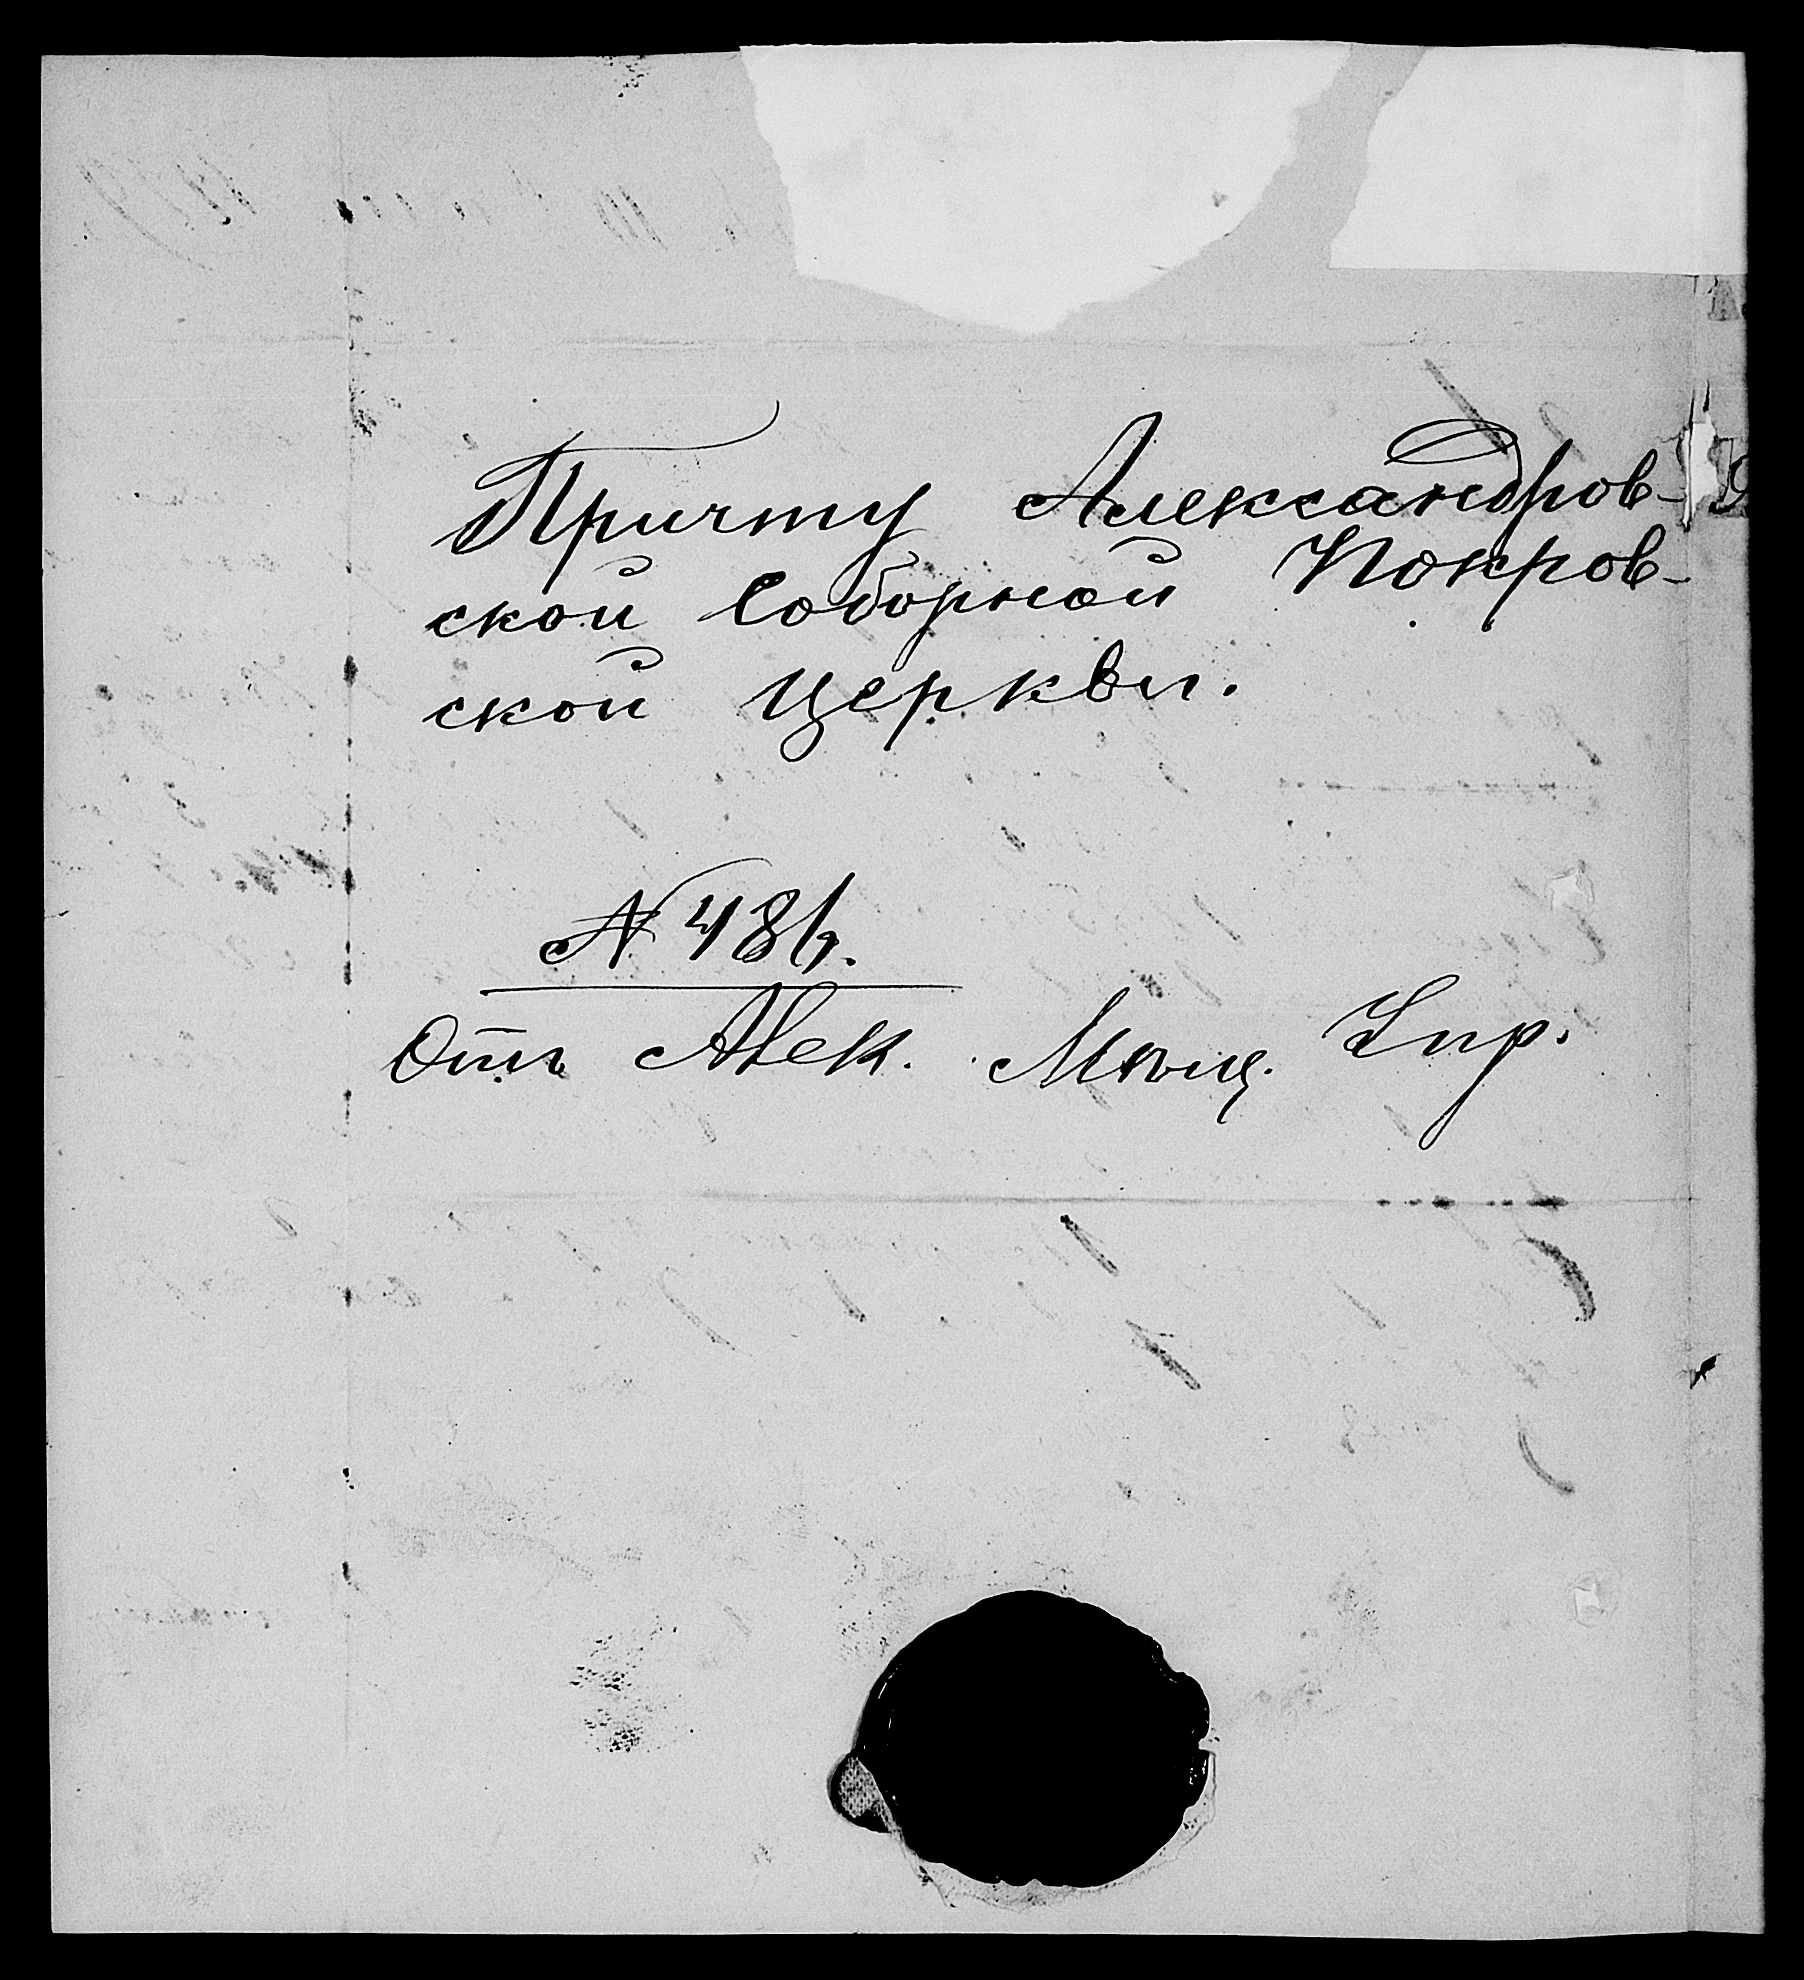 Причту Александров-
ской Соборной Покров-
ской Церкви.
№ 486.
Отъ Алек. Мѣщ. Упр.